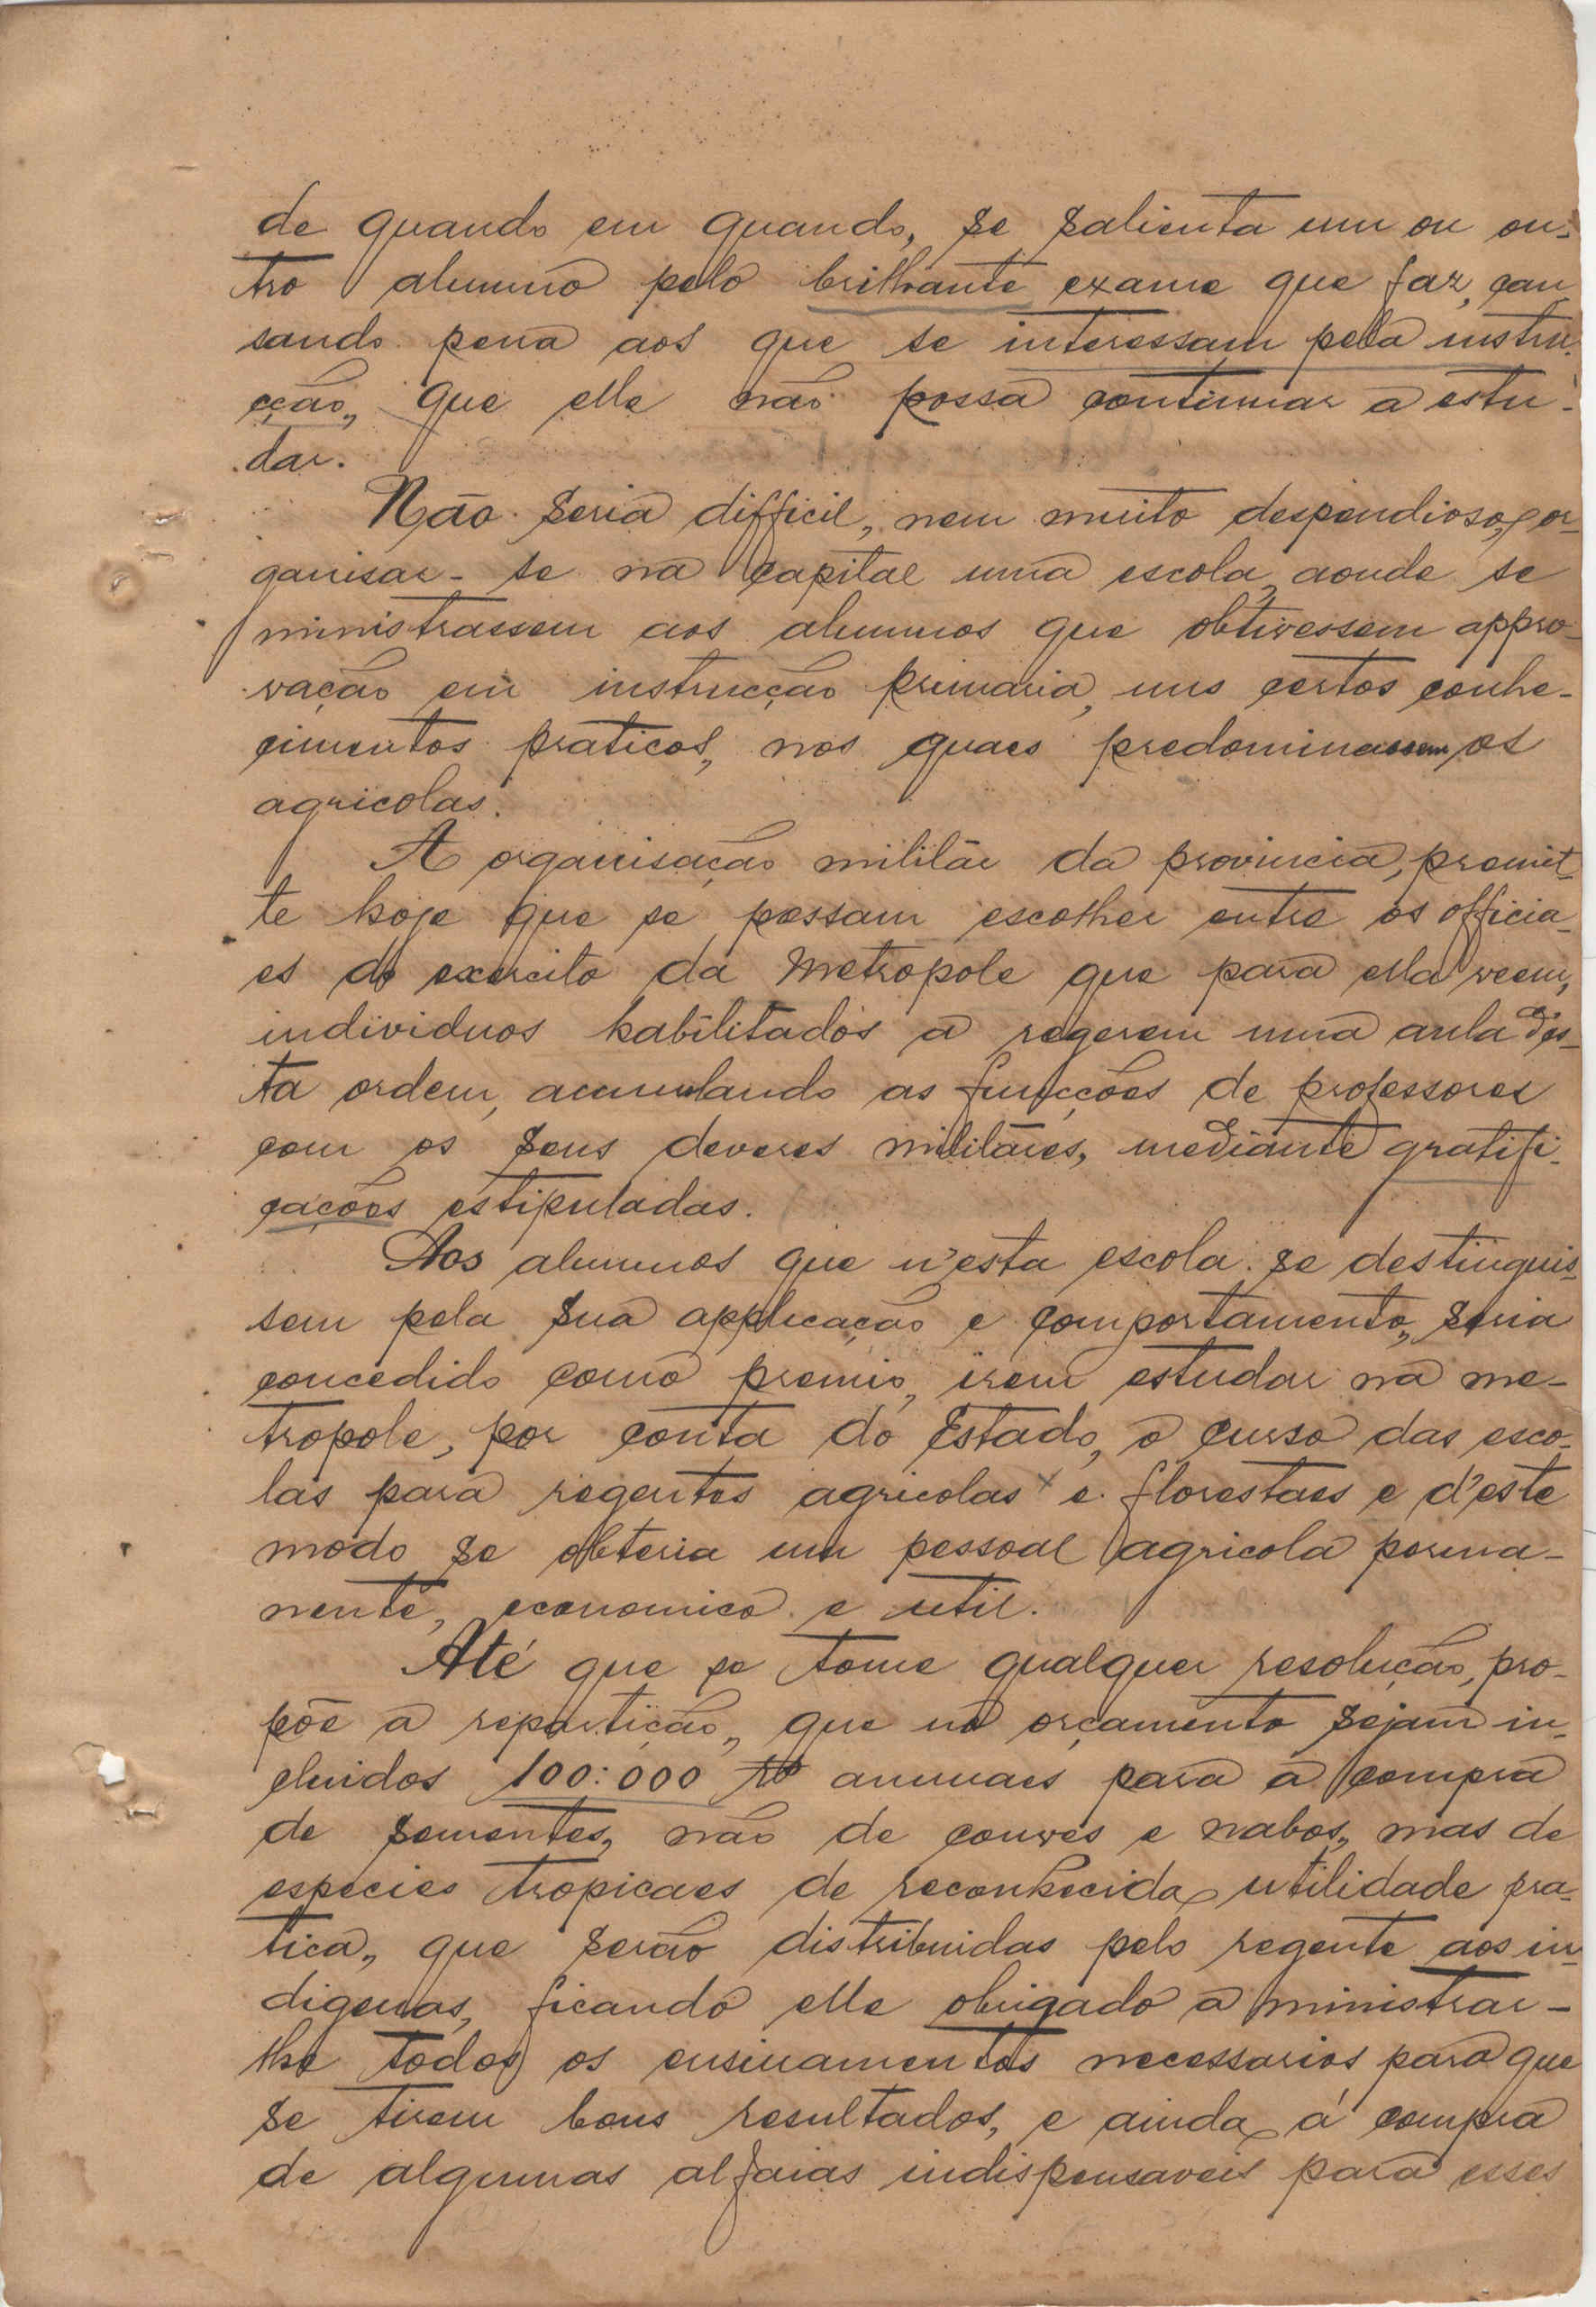 de quando em quando, se salienta um ou ou-
tro alumno pelo brilhante exame que faz, cau
sando pena aos que se interessam pela instru-
cção, que elle não possa continuar a estu-
dar.
Não seria difficil, nem muito despendioso, or-
ganisar-se na capital uma escola, aonde se
ministrassem aos alumnos que obtivessem appro-
vação em instrucção primaria, uns certos conhe-
cimentos praticos, nos quaes predominassem os
agricolas.
A organisação militár da provincia, promit-
te hoje que se possam escolher entre os officia-
es do exercito da Metropole que para ella veem,
individuos habilitados a regerem uma aula des-
ta ordem, acumulando as funcções de professores
com os seus deveres militáres, mediante gratifi-
cações estipuladas.
Aos alumnos que n'esta escola se destinguis-
sem pela sua applicação e comportamento, seria
concedido como premio, irem estudar na me-
tropole, por conta do Estado, o curso das esco-
las para regentes agricolas e florestaes e d'este
modo se obteria um pessoal agricola perma-
nente, economico e util.
Até que se tome qualquer resolução, pro-
põe a repartição, que no orçamento sejam in-
cluidos 100:000 rs annuaes para a compra
de sementes, não de couves e nabos, mas de
especies tropicaes de reconhecida utilidade pra-
tica, que serão distribuidas pelo regente aos in-
digenas, ficando elle obrigado a ministrar-
lhe todos os ensinamentos necessarios para que
se tirem bons resultados, e ainda á compra
de algumas alfaias indispensaveis para esses